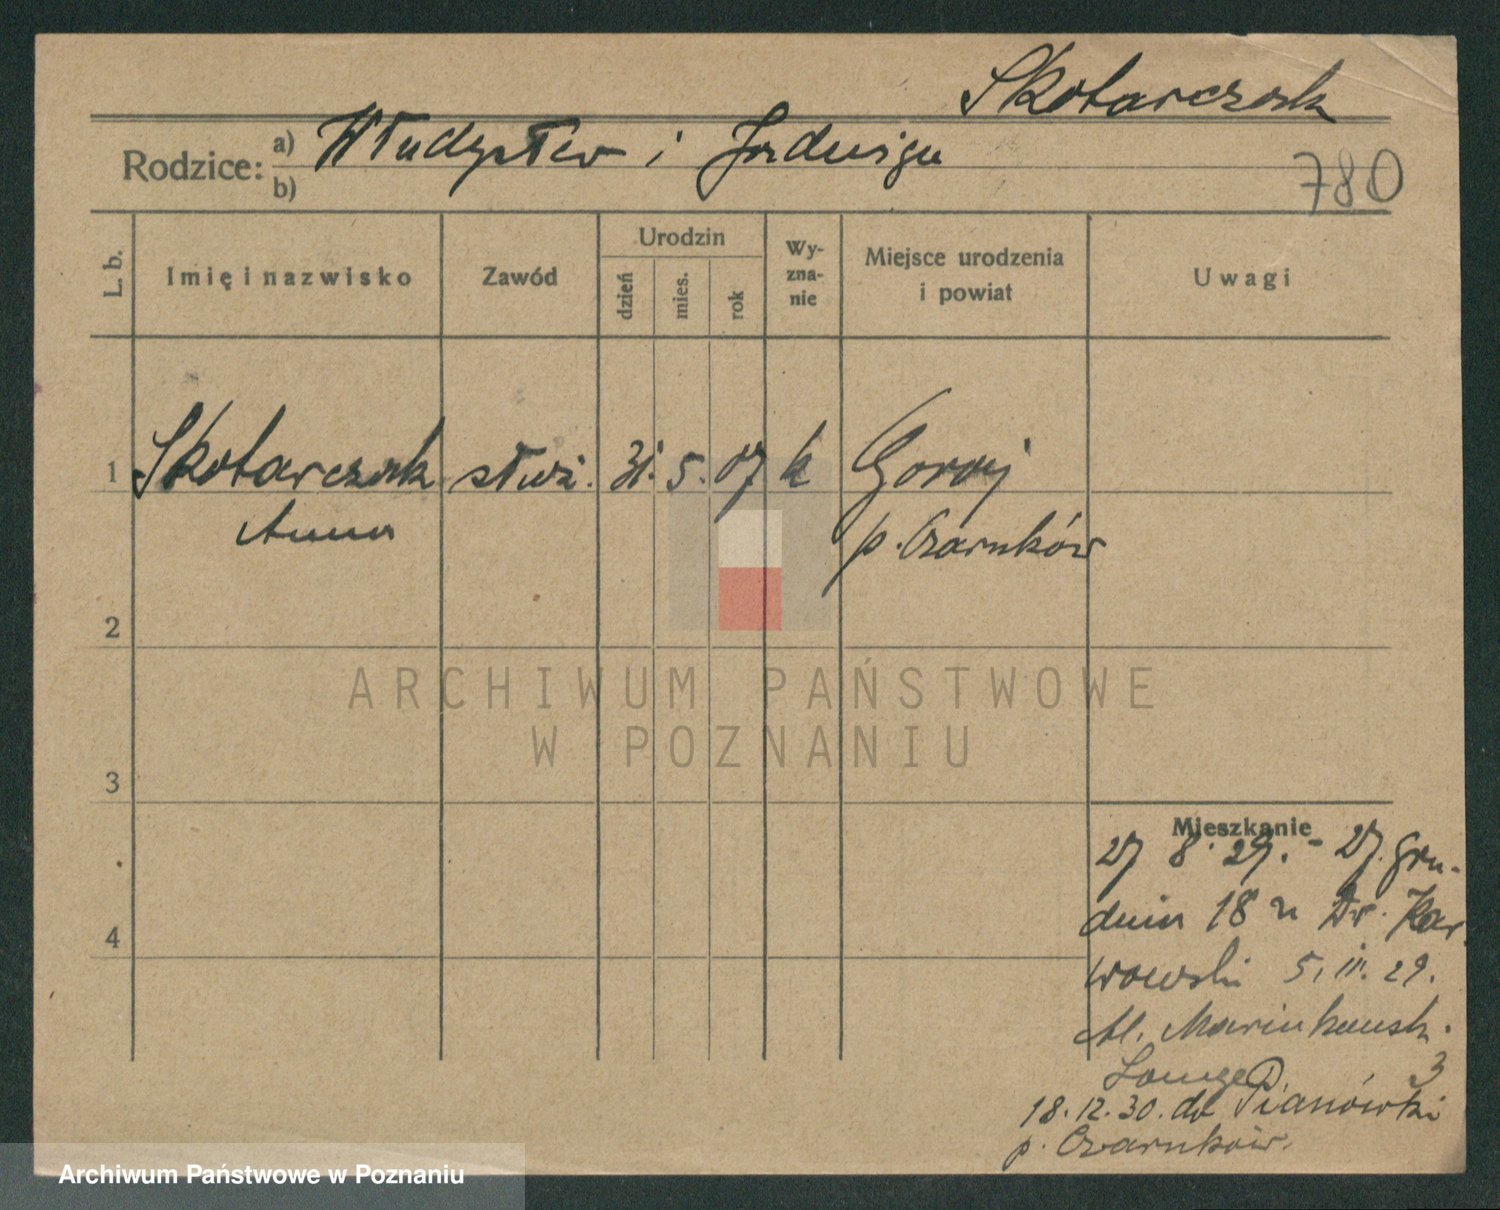 Skotarczak
Rodzice: a) Władysław i Jadwiga
b)
780
L. b.
Imię i nazwisko
Zawód
Urodzin
dzień
mies.
rok
Wy-
zna-
nie
Miejsce urodzenia
i powiat
Uwagi
1 Skotarczak służ. 31. 5. 07 k Goraj
Anna p. Czarnków
2
ARCHIWUM PAŃSTWOWE
W POZNANIU
3
Mieszkanie
27 8. 29. - 27. Gru-
dnia 18 Dr. Kar
wowski 5. 11. 29.
Al. Marcinkowsk. 3
Lange
4
18.12.30. do Pianówki
p. Czarnków.
Archiwum Państwowe w Poznaniu